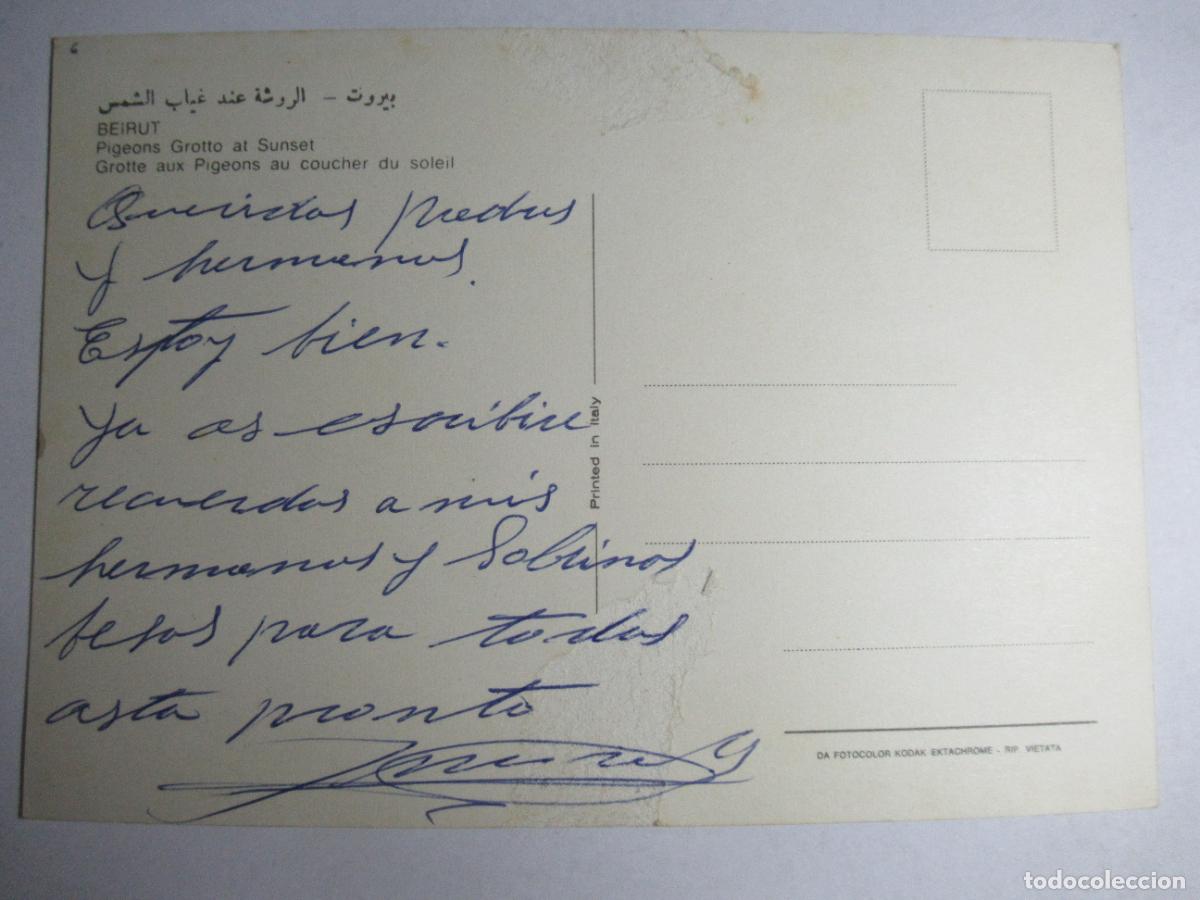 6
بيروت - الروشة عند غياب الشمس
BEIRUT
Pigeons Grotto at Sunset
Grotte aux Pigeons au coucher du soleil
Queridos padres
y hermanos.
Estoy bien.
ya os escribire
recuerdos a mis
hermanos y Sobrinos
besos para todos
asta pronto
Printed in Italy
DA FOTOCOLOR KODAK EKTACHROME - RIP. VIETATA
todocoleccion